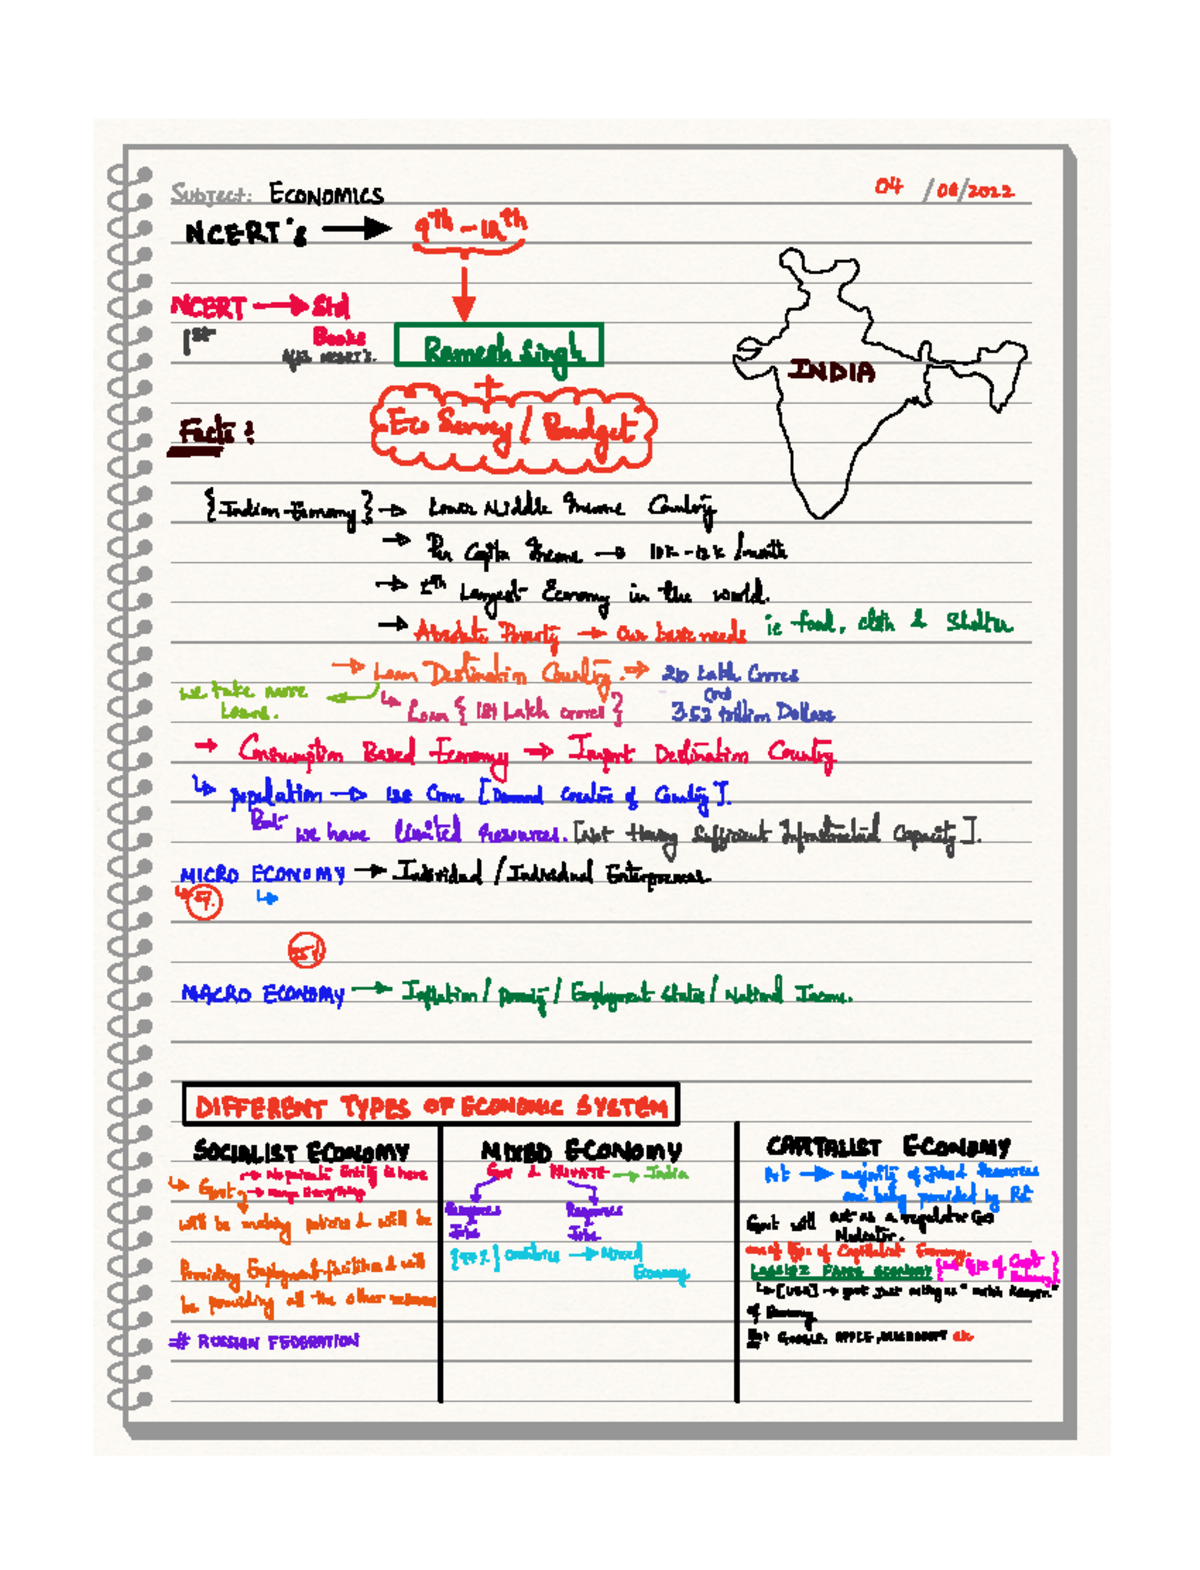 Subject: ECONOMICS
04 /08/2022
NCERT's → 9th - 12th
NCERT → Std
1st Books
After NCERT's.
Ramesh Singh
+
Eco Survey / Budget
INDIA
Facts:
{Indian Economy} → Lower Middle Income Country
→ Per Capita Income → 10k-12k /month
→ Largest Economy in the world.
→ Absolute Poverty → Our basic needs ie food, cloth & Shelter
→ Loan Destination Country. → Lakh Crores
we take more
Loans.
Loan { Lakh crores }
3.53 trillion Dollars
→ Consumption Based Economy → Import Destination Country
↳ population → Crore [Demand Creators of Country].
But we have limited resources. [Not Having Sufficient Infrastructural Capacity].
MICRO ECONOMY → Individual / Individual Entrepreneur.
MACRO ECONOMY → Inflation / Poverty / Employment / National Income.
DIFFERENT TYPES OF ECONOMIC SYSTEM
SOCIALIST ECONOMY
→ No private Entity is here
↳ Govt. → Everything
will be making policies & will be
Providing Employment facilities & will
be providing all the other
# RUSSIAN FEDERATION
MIXED ECONOMY
Gov & PRIVATE → India
Resources Resources
Jobs Jobs
countries → Mixed
Economy
CAPITALIST ECONOMY
Pvt → majority of Jobs & Resources
are being provided by Pvt
Govt will act as a regulator
one of type of Capitalist Economy.
↳ [USA] → govt just acting as
of Economy
GOOGLE, APPLE, MICROSOFT etc